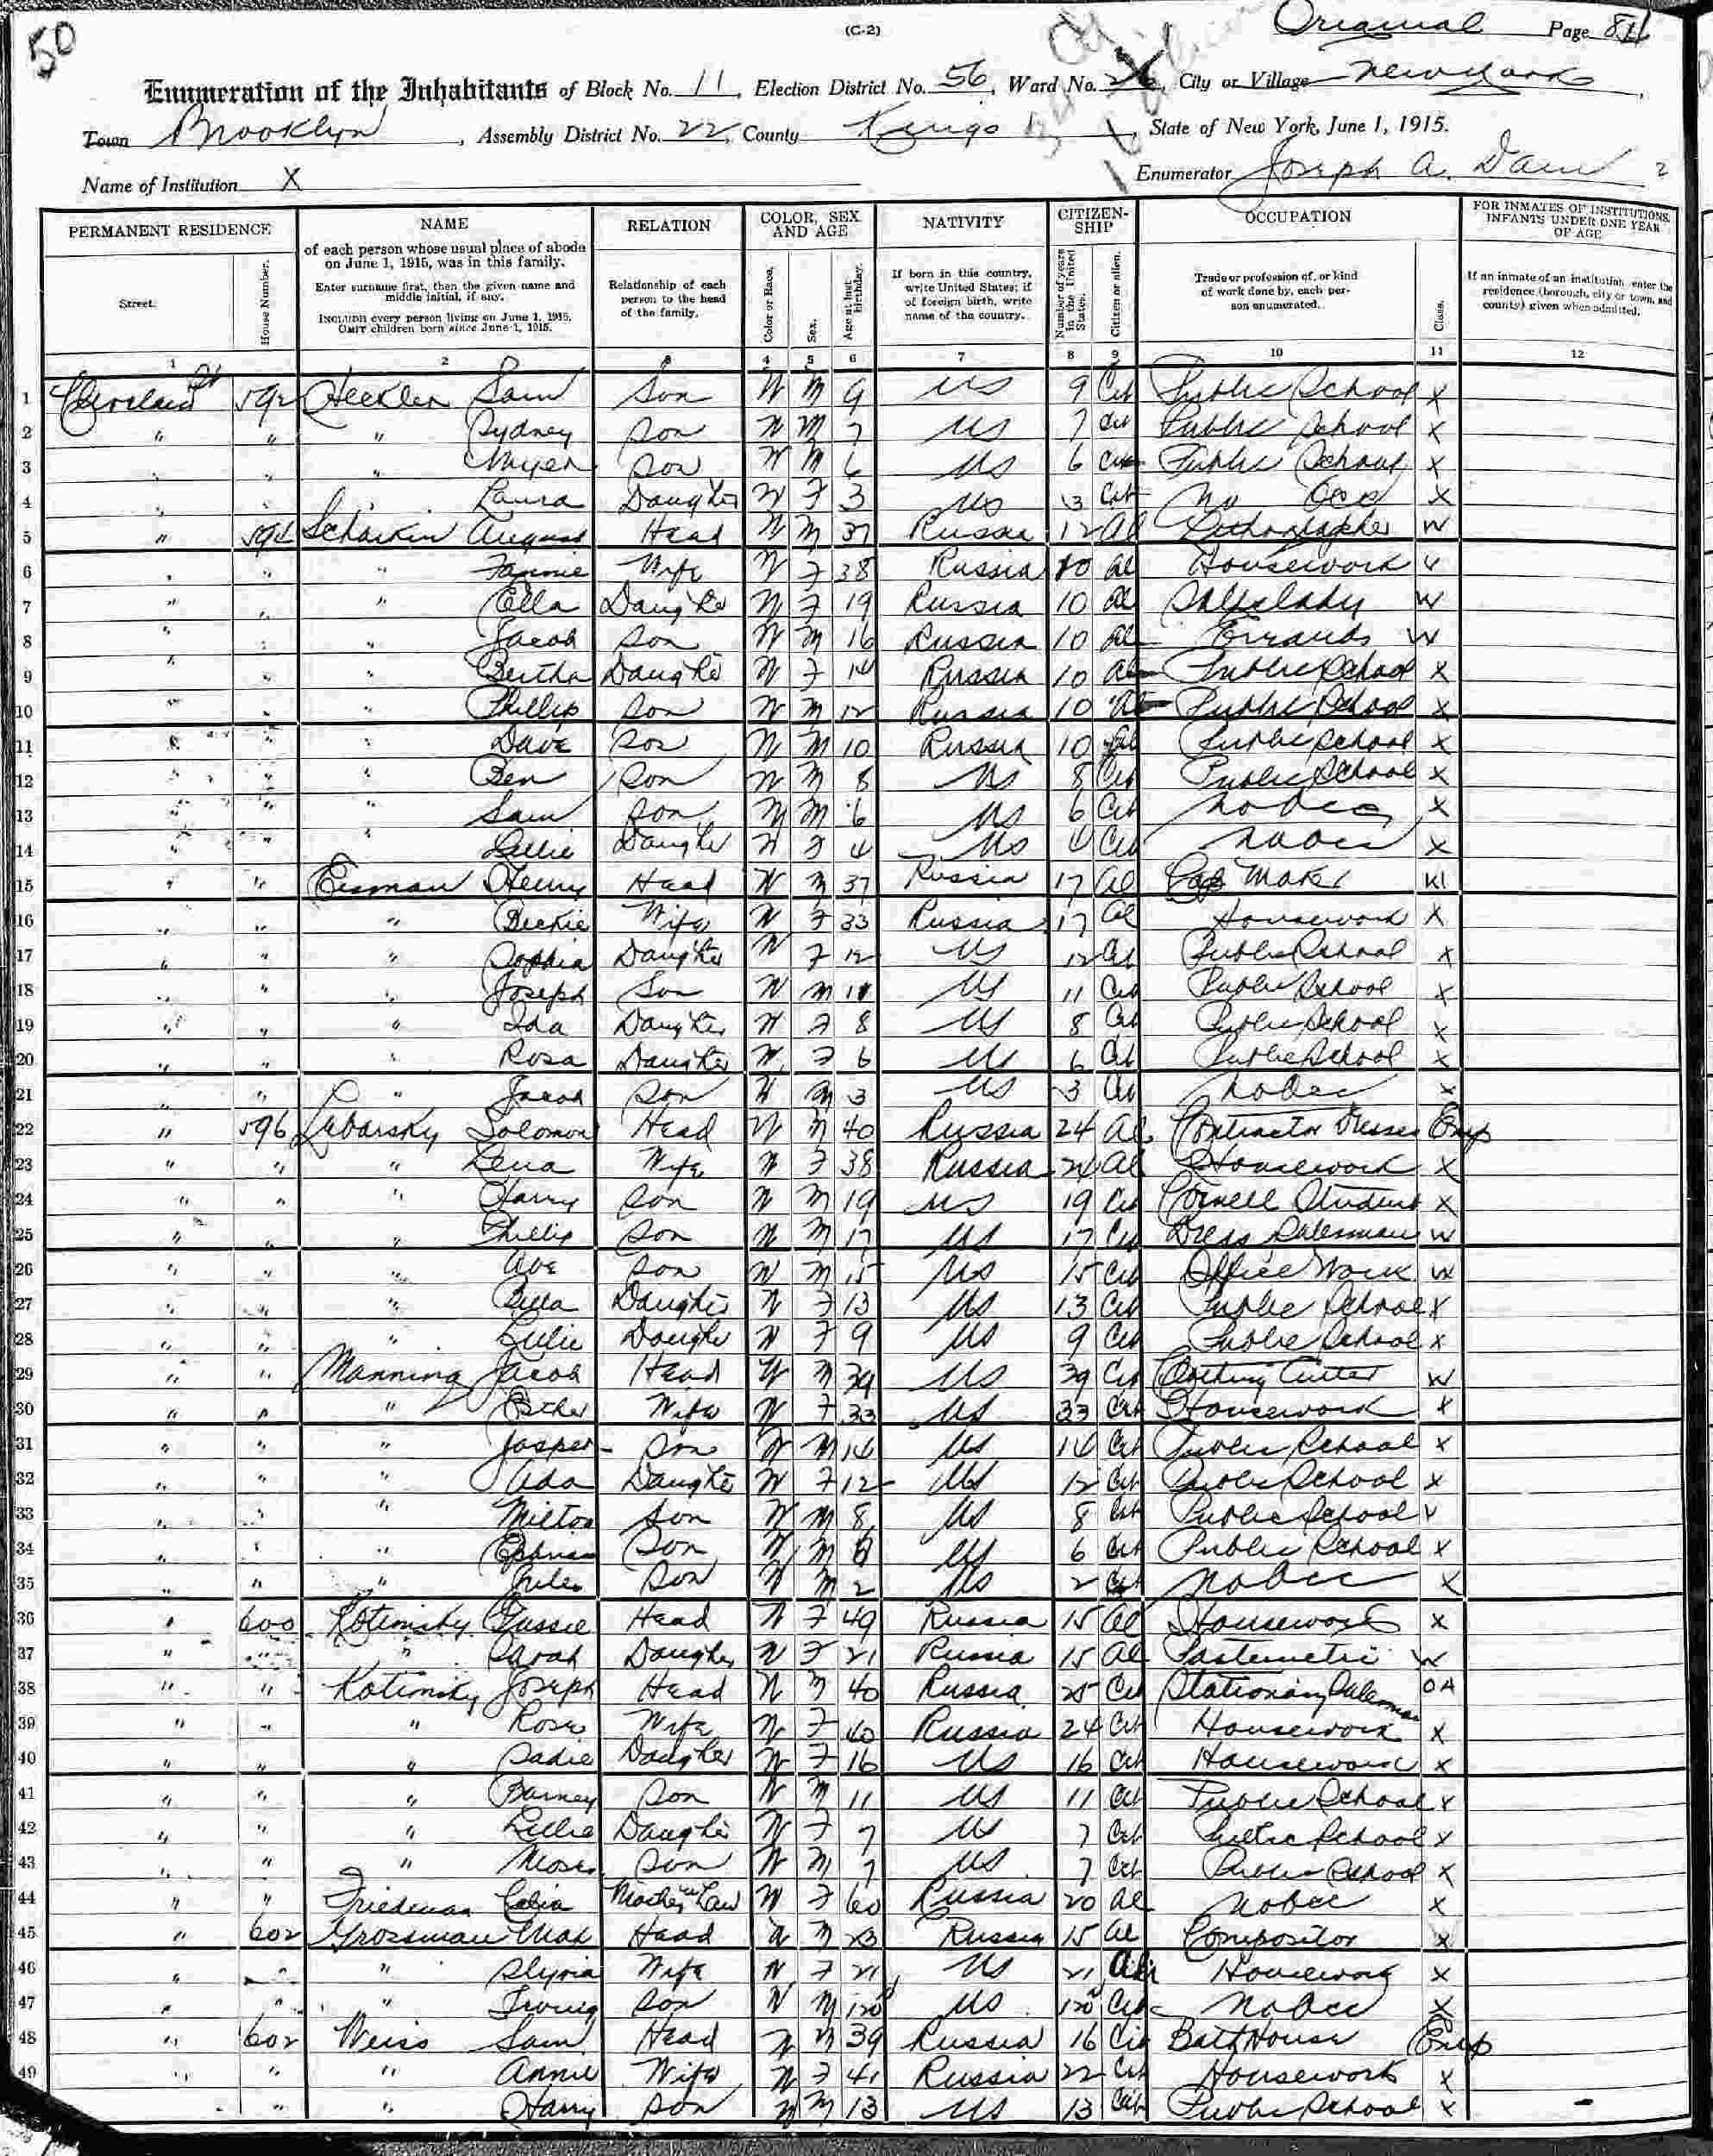 50
(C-2)
Original Page 84
Enumeration of the Inhabitants of Block No. 11, Election District No. 56, Ward No. 26, City or Village New York,
Town Brooklyn, Assembly District No. 22, County Kings, State of New York, June 1, 1915.
Name of Institution X Enumerator Joseph A. 2
PERMANENT RESIDENCE NAME RELATION COLOR, SEX AND AGE NATIVITY CITIZENSHIP OCCUPATION FOR INMATES OF INSTITUTIONS, INFANTS UNDER ONE YEAR OF AGE
Street. House Number. of each person whose usual place of abode on June 1, 1915, was in this family. Enter surname first, then the given name and middle initial, if any. INCLUDE every person living on June 1, 1915. OMIT children born since June 1, 1915. Relationship of each person to the head of the family. Color or Race. Sex. Age at last birthday. If born in this country, write United States; if of foreign birth, write name of the country. Number of years in the United States. Citizen or alien. Trade or profession of, or kind of work done by, each person enumerated. Class. If an inmate of an institution enter the residence (borough, city or town, and county) given when admitted.
1 2 3 4 5 6 7 8 9 10 11 12
1 Cleveland St 592 Sam Son W M 9 US 9 Cit Public School X
2 " " " Sydney Son W M 7 US 7 Cit Public School X
3 " " " Myer Son W M 6 US 6 Cit Public School X
4 " " " Laura Daughter W F 3 US 3 Cit No Occ X
5 " 594 August Head W M 37 Russia 12 Al Lithographer W
6 " " " Fannie Wife W F 38 Russia 10 Al Housework
7 " " " Ella Daughter W F 19 Russia 10 Al Saleslady W
8 " " " Jacob Son W M 16 Russia 10 Al Errands W
9 " " " Bertha Daughter W F 14 Russia 10 Al Public School X
10 " " " Phillip Son W M 12 Russia 10 Al Public School X
11 " " " Dave Son W M 10 Russia 10 Al Public School X
12 " " " Ben Son W M 8 US 8 Cit Public School X
13 " " " Sam Son W M 6 US 6 Cit No Occ X
14 " " " Lillie Daughter W F 4 US 4 Cit No Occ X
15 " " Eisman Henry Head W M 37 Russia 17 Al Cap Maker W
16 " " " Beckie Wife W F 33 Russia 17 Al Housework X
17 " " " Sophia Daughter W F 12 US 12 Cit Public School X
18 " " " Joseph Son W M 11 US 11 Cit Public School X
19 " " " Ida Daughter W F 8 US 8 Cit Public School X
20 " " " Rosa Daughter W F 6 US 6 Cit Public School X
21 " " " Jacob Son W M 3 US 3 Cit No Occ X
22 " 596 Lubarsky Solomon Head W M 40 Russia 24 Al Contractor Dresses Emp
23 " " " Lena Wife W F 38 Russia 24 Al Housework X
24 " " " Harry Son W M 19 US 19 Cit Cornell Student X
25 " " " Phillip Son W M 17 US 17 Cit Dress Salesman W
26 " " " Abe Son W M 15 US 15 Cit Office Work W
27 " " " Bella Daughter W F 13 US 13 Cit Public School X
28 " " " Lillie Daughter W F 9 US 9 Cit Public School X
29 " " Manning Jacob Head W M 39 US 39 Cit Clothing Cutter W
30 " " " Esther Wife W F 33 US 33 Cit Housework X
31 " " " Jasper Son W M 14 US 14 Cit Public School X
32 " " " Ada Daughter W F 12 US 12 Cit Public School X
33 " " " Milton Son W M 8 US 8 Cit Public School X
34 " " " Son W M 6 US 6 Cit Public School X
35 " " " Jules Son W M 2 US 2 Cit No Occ X
36 " 600 Kotimsky Gussie Head W F 49 Russia 15 Al Housework X
37 " " " Sarah Daughter W F 21 Russia 15 Al W
38 " " Kotimsky Joseph Head W M 40 Russia 25 Cit Stationary Salesman OA
39 " " " Rose Wife W F 40 Russia 24 Cit Housework X
40 " " " Sadie Daughter W F 16 US 16 Cit Housework X
41 " " " Barney Son W M 11 US 11 Cit Public School X
42 " " " Lillie Daughter W F 7 US 7 Cit Public School X
43 " " " Moses Son W M 7 US 7 Cit Public School X
44 " " Friedman Celia Mother in Law W F 60 Russia 20 Al No Occ X
45 " 602 Grossman Max Head W M 23 Russia 15 Al Compositor X
46 " " " Wife W F 21 US 21 Housework X
47 " " " Irving Son W M US Cit No Occ X
48 " 602 Weiss Sam Head W M 39 Russia 16 Cit Bath House Emp
49 " " " Annie Wife W F 41 Russia 22 Cit Housework X
" " Harry Son W M 13 US 13 Cit Public School X